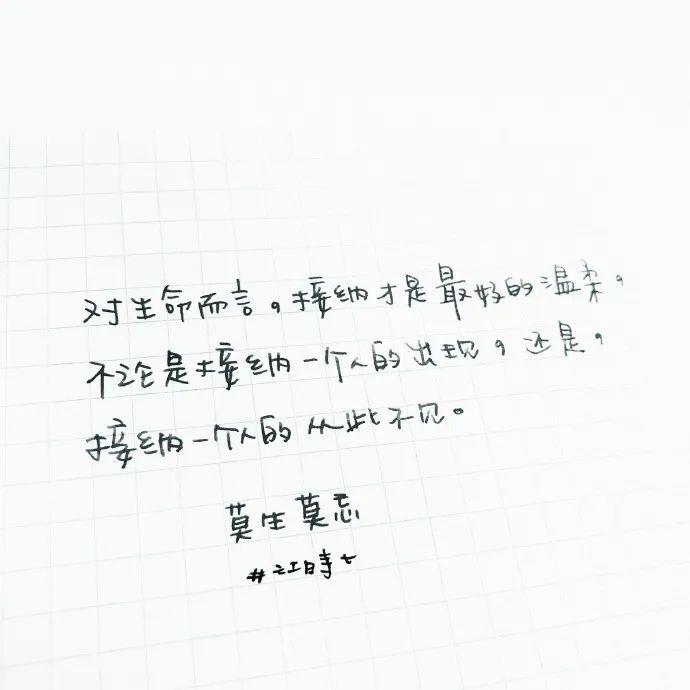 对生命而言，接纳才是最好的温柔，
不论是接纳一个人的出现，还是，
接纳一个人的从此不见。
莫生莫忘